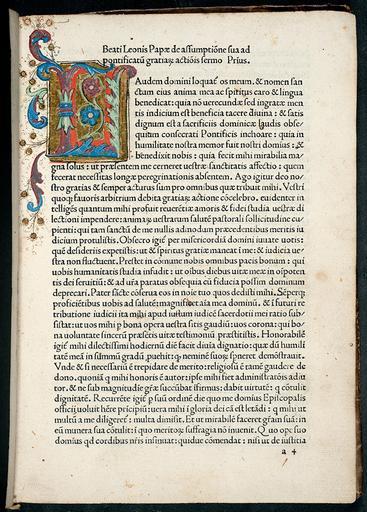 Beati Leonis Papæ de assumptiõne sua ad
pontificatũ gratiaꝝ actiõis sermo Prius.
Audem domini loquat᷑ os meum. & nomen san
ctum eius anima mea ac spiritus caro & lingua
benedicat: quia nõ uerecundæ sed ingratæ men
tis indicium est beneficia tacere diuina: & satis
dignum est a sacrificiis dominicæ laudis obse
quium consecrati Pontificis inchoare: quia in
humilitate nostra memor fuit nostri dominus: &
benedixit nobis: quia fecit mihi mirabilia ma
gna solus: ut præsentem me cerneret uestræ sanctitatis affectio: quem
fecerat necessitas longæ peregrinationis absentem. Ago igitur deo no
stro gratias & semper acturus sum pro omnibus quæ tribuit mihi. Vestri
quoqꝫ fauoris arbitrium debita gratiaꝝ actione cõcelebro. euidenter in
telligẽs quantum mihi possit reuerẽtiæ amoris & fidei studia uestræ di
lectionis impendere: animarum uestrarum salutẽ pastorali sollicitudine cu
pienti: qui tam sanctũ de me nullis admodum præcedentibus meritis iu
dicium protulistis. Obsecro igit᷑ per misericordiã domini iuuate uotis:
quẽ desideriis expetistis: ut & spiritus gratiæ maneat ĩ me: & iudicia ue
stra non fluctuent. Prestet in cõmune nobis omnibus pacis bonum: qui
uobis humanitatis studia infudit: ut oibus diebus uitæ meæ in oipoten
tis dei seruitiũ: & ad ur̃a paratus obsequia cũ fiducia possim dominum
deprecari. Pater sãcte cõserua eos in noĩe tuo quos dedisti mihi. Sẽperqꝫ
proficiẽtibus uobis ad salutẽ: magnificet aĩa mea dominũ. & ĩ futuri re
tributione iudicii ita mihi apud iustum iudicẽ sacerdotii mei ratio sub-
sistat: ut uos mihi p bona opera uestra sitis gaudiũ: uos corona: qui bo-
na uoluntate sincerũ præsẽtis uitæ testimoniũ præstitistis. Honorabilẽ
igit᷑ mihi dilectissimi hodiernũ diẽ facit diuia dignatio: quæ dũ humili
tatẽ meã in summũ gradũ ,puehit: ꝙ neminẽ suoꝝ spneret demõstrauit.
Vnde & si necessariũ ẽ trepidare de merito: religiosũ ẽ tamẽ gaudere de
dono. quoniã q mihi honoris ẽ autor: ipse mihi fiet administratiõis adiu
tor. & ne sub magnitudĩe gr̃æ succũbat ĩfirmus: dabit uirtutẽ: q cõtulit
dignitatẽ. Recurrẽte igit᷑ p suũ ordinẽ die quo me domĩus Epĩscopalis
officii uoluit hẽre prĩcipiũ: uera mihi ĩ gloria dei cã est lætãdi: q mihi ut
multũ a me diligeret᷑: multa dimisit. Et ut mirabilẽ faceret gr̃am suã: in
eũ munera sua cõtulit: ĩ quo meritoꝝ suffragia nõ inuenit. Quo ope suo
domĩus qd cordibus nr̃is insinuat: quidue cõmendat: nisi ut de iustitia
a 4